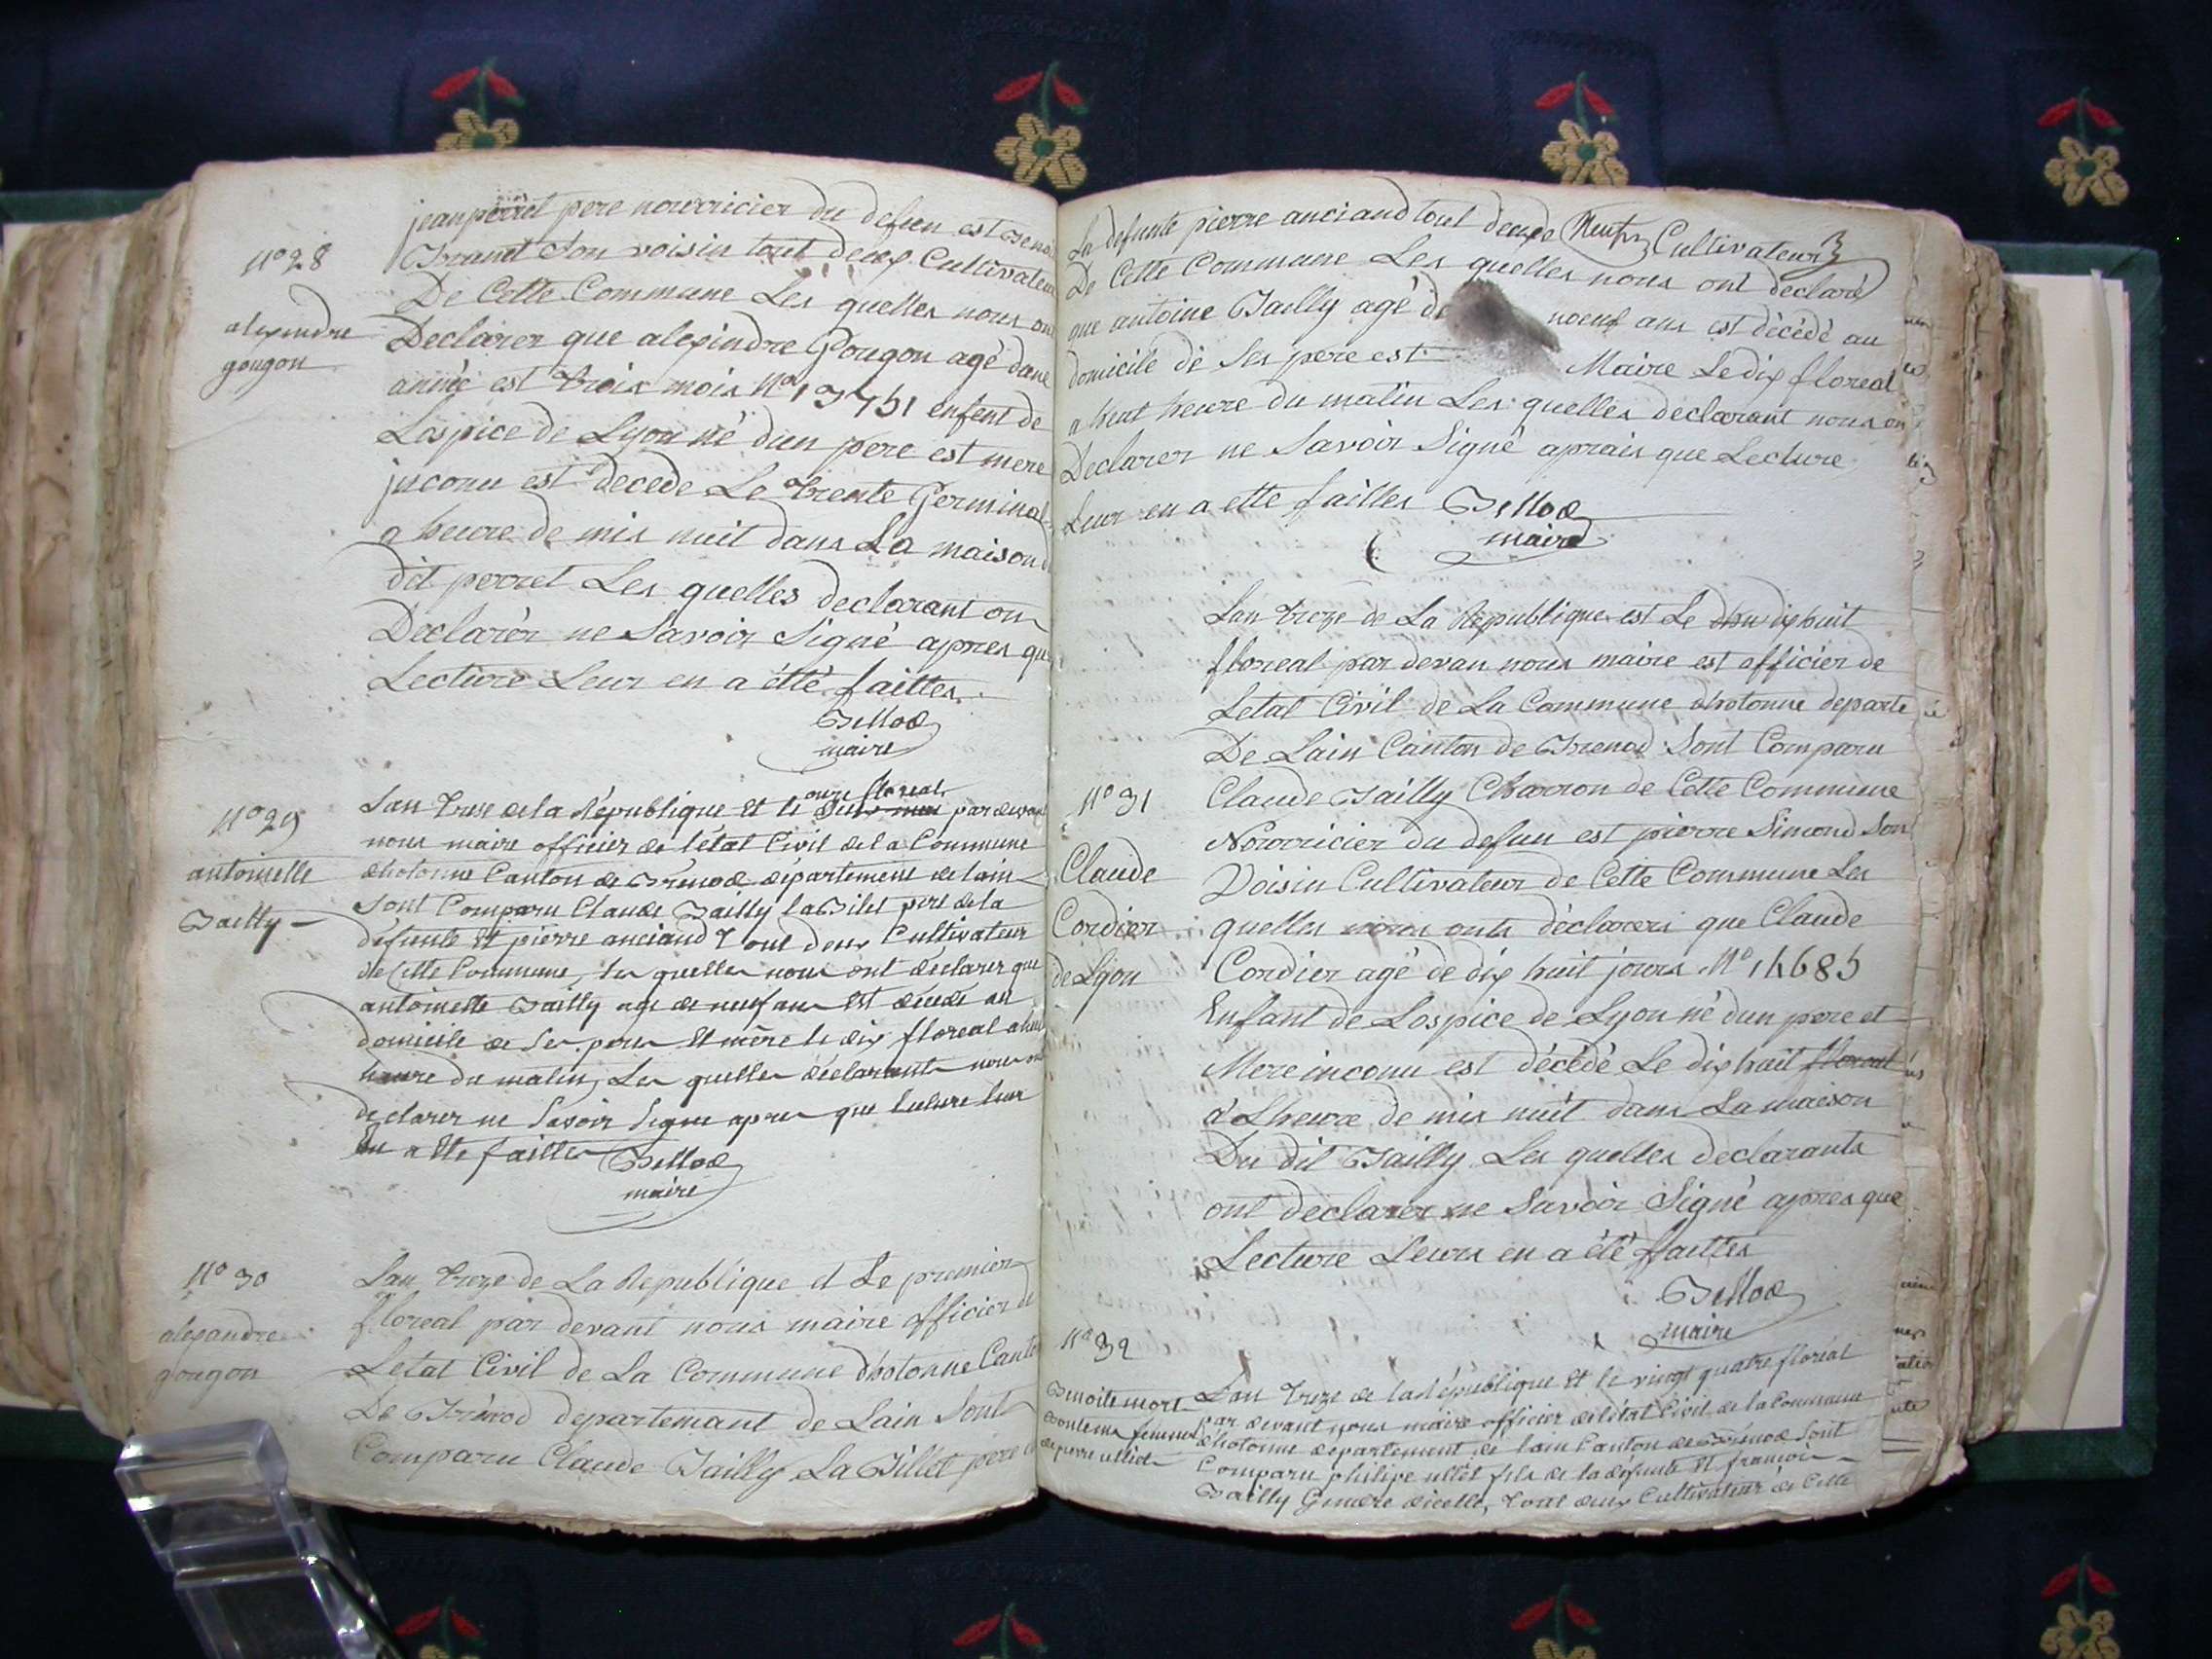 jean perret pere nourricier du defun est
son voisin tout deux Cultivateur
N° 28
De Cette Commune Les quelles nous ont
alexindre
Declarer que alexindre Gougon agé dune
gougon
année est trois mois N° 13751 enfent de
Lospice de Lyon né dun pere est mere
jnconu est decede Le trente Germinal
a heure de mis nuit dans La maison du
dit perret Les quelles declarant on
Declarér ne Savoir Signé apres que
Lecture Leur en a étté faittes
maire
N° 29
onze floreal
Lan treze de la République et le par devant
nous maire officier de l'état Civil de la Commune
antoinette
dhotonne Canton de Brénod département de lain
Bailly
Sont Comparu Claude Bailly pere de la
défunte et pierre anciand tout deux Cultivateur
de Cette Commune, les quelles nous ont déclarer que
antoinette Bailly age de neuf ans est décédé au
domicile de Ses peres et mère le dix floreal a huit
heure du matin, Les quelles déclarants nous ont
declarer ne Savoir Signe apres que lecture leur
en a ette faittes
maire
N° 30
Lan treze de La Republique et Le premier
floreal par devant nous maire officier de
alexandre
gougon
Letat Civil de La Commune dhotonne Canton
De Brénod departemant de Lain Sont
Comparu Claude Bailly La Billet pere de
La defunte pierre anciand tout deuxe Cultivateur
De Cette Commune Les quelles nous ont declaré
que antoine Bailly agé de noeuf ans est décédé au
domicile de Ses pere est Maire Le dix floreal
a heut heure du matin Les quelles declarant nous on
Declarer ne Savoir Signé aprais que Lecture
Leur en a ette faittes
maire
Lan treze de La Republique est Le dix huit
floreal par devan nous maire est officier de
Letat Civil de La Commune dhotonne departe
De Lain Canton de Brenod Sont Comparu
N° 31
Claude Bailly Charron de Cette Commune
Nourricier du defun est pierre Simond Son
Claude
Voisin Cultivateur de Cette Commune Les
Cordier
quelles nous onts déclarer que Claude
de Lyon
Cordier agé de dix huit jours N° 14685
Enfant de Lospice de Lyon né dun pere et
Mere inconu est décédé Le dix huit floreal
a Lheure de mis nuit dans La maison
Du dit Bailly Les quelles declarants
ont declarer ne Savoir Signé apres que
Lecture Leurs en a été faittes
maire
N° 32
Lan treze de la République et le vingt quatre floréal
par devant nous maire officier de létat Civil de la Commune
femme
dhotonne département de lain Canton de Brénod Sont
de pierre
Comparu philipe fils de la défunte et françois
Bailly Gendre dicelle, tout deux Cultivateur de Cette